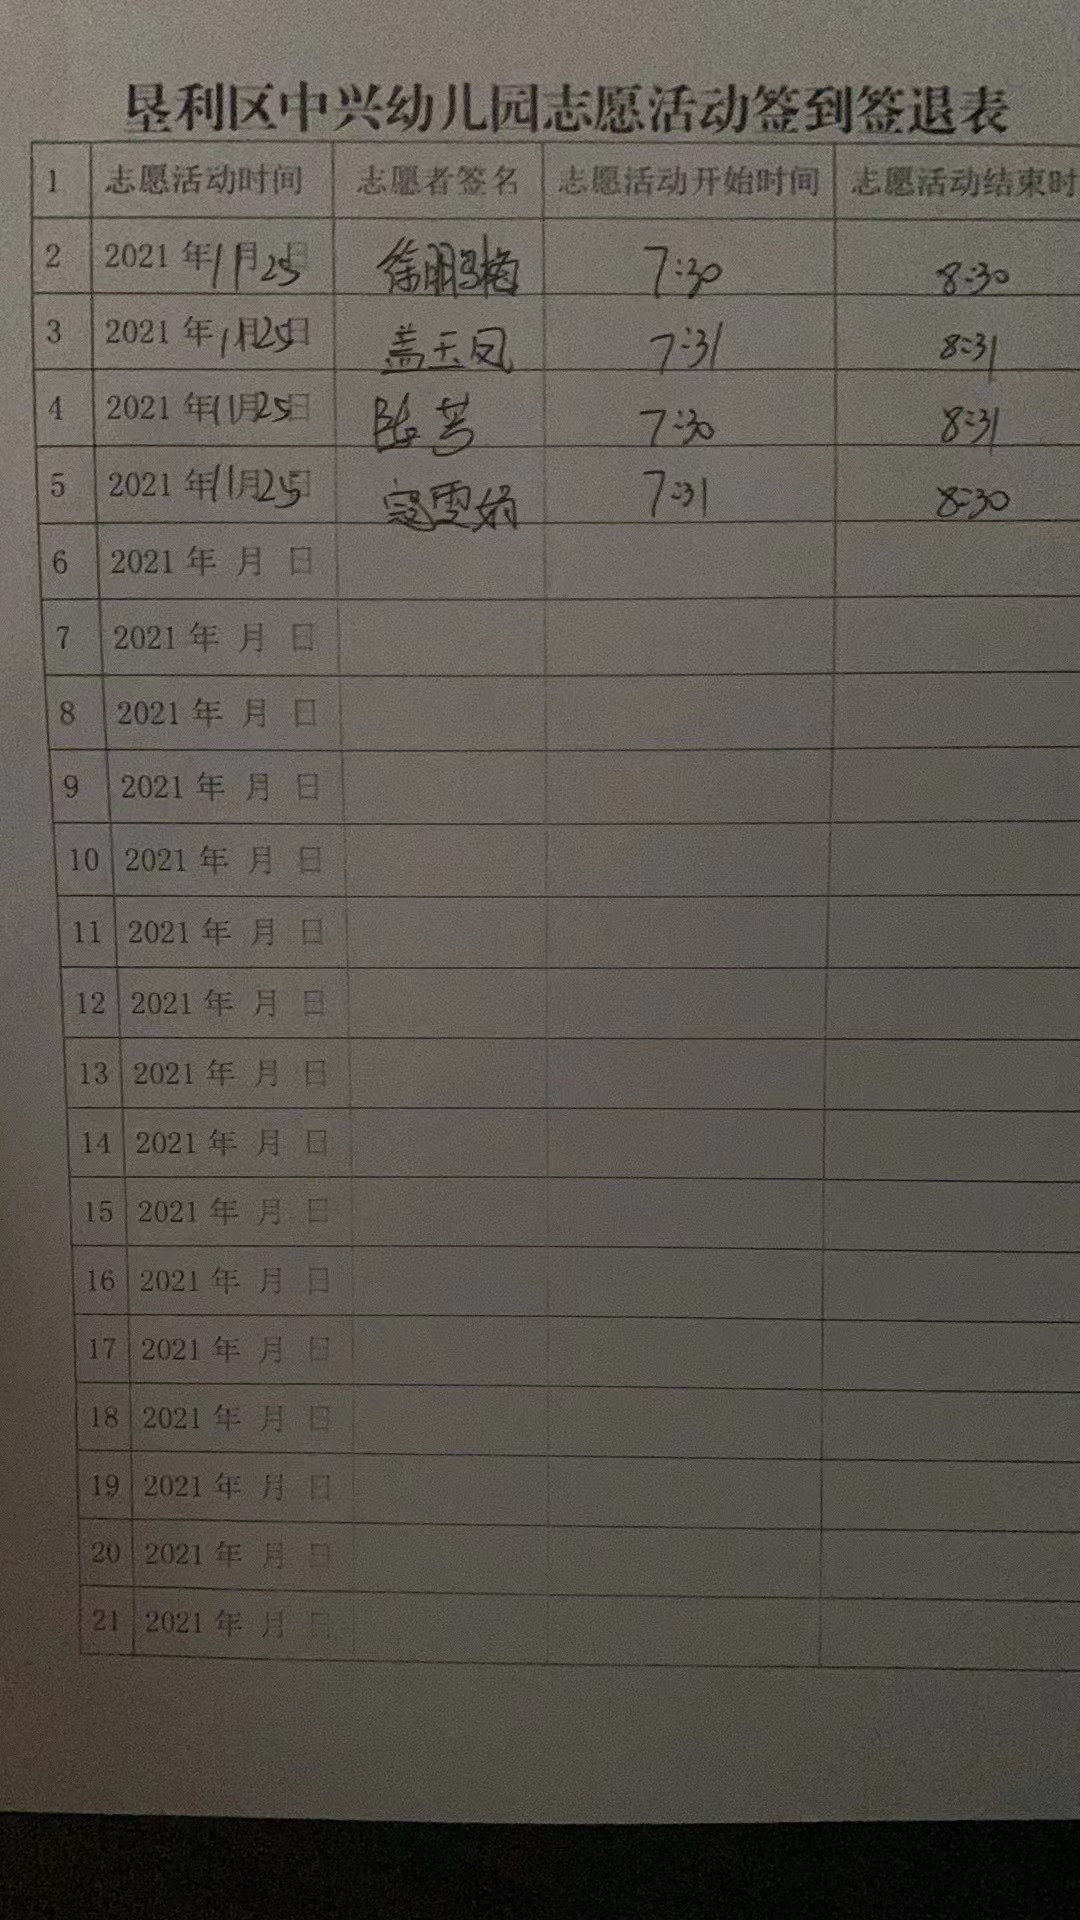 垦利区中兴幼儿园志愿活动签到签退表
1 志愿活动时间 志愿者签名 志愿活动开始时间 志愿活动结束时
2 2021 年11月25日 徐鹏梅 7:30 8:30
3 2021 年11月25日 盖玉凤 7:31 8:31
4 2021 年11月25日 陈芳 7:30 8:31
5 2021 年11月25日 寇雪娟 7:31 8:30
6 2021 年 月 日
7 2021 年 月 日
8 2021 年 月 日
9 2021 年 月 日
10 2021 年 月 日
11 2021 年 月 日
12 2021 年 月 日
13 2021 年 月 日
14 2021 年 月 日
15 2021 年 月 日
16 2021 年 月 日
17 2021 年 月 日
18 2021 年 月 日
19 2021 年 月 日
20 2021 年 月 日
21 2021 年 月 日